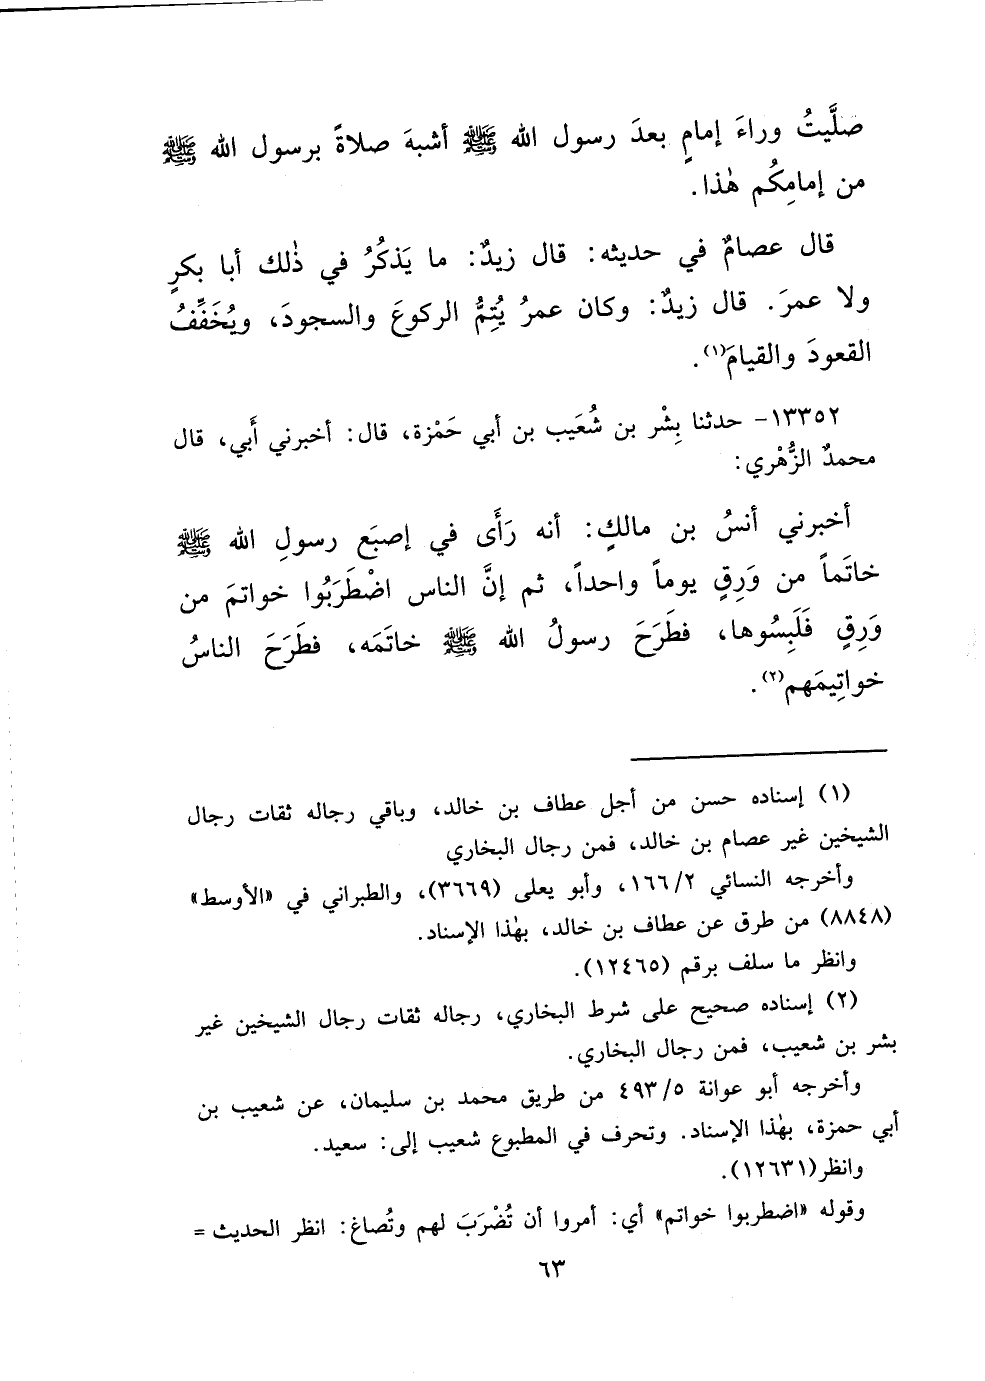 صَلَّيتُ وراءَ إمامٍ بعدَ رسول الله ﷺ أشبهَ صلاةً برسول الله ﷺ
من إمامِكُم هٰذا.
قال عصامٌ في حديثه: قال زيدٌ: ما يَذكُرُ في ذٰلك أبا بكرٍ
ولا عمرَ. قال زيدٌ: وكان عمرُ يُتِمُّ الركوعَ والسجودَ، ويُخَفِّفُ
القعودَ والقيامَ(١).
١٣٣٥٢- حدثنا بِشْر بن شُعَيب بن أبي حَمْزة، قال: أخبرني أَبي، قال
محمدٌ الزُّهْري:
أخبرني أنسُ بن مالكٍ: أنه رَأَى في إصبَع رسولِ الله ﷺ
خاتَماً من وَرِقٍ يوماً واحداً، ثم إنَّ الناس اضْطَرَبُوا خواتمَ من
وَرِقٍ فَلَبِسُوها، فطَرَحَ رسولُ الله ﷺ خاتَمَه، فطَرَحَ الناسُ
خواتِيمَهم(٢).
(١) إسناده حسن من أجل عطاف بن خالد، وباقي رجاله ثقات رجال
الشيخين غير عصام بن خالد، فمن رجال البخاري
وأخرجه النسائي ١٦٦/٢، وأبو يعلى (٣٦٦٩)، والطبراني في «الأوسط»
(٨٨٤٨) من طرق عن عطاف بن خالد، بهٰذا الإسناد.
وانظر ما سلف برقم (١٢٤٦٥).
(٢) إسناده صحيح على شرط البخاري، رجاله ثقات رجال الشيخين غير
بشر بن شعيب، فمن رجال البخاري.
وأخرجه أبو عوانة ٤٩٣/٥ من طريق محمد بن سليمان، عن شعيب بن
أبي حمزة، بهٰذا الإسناد. وتحرف في المطبوع شعيب إلى: سعيد.
وانظر(١٢٦٣١).
وقوله «اضطربوا خواتم» أي: أمروا أن تُضْرَبَ لهم وتُصاغ: انظر الحديث =
٦٣